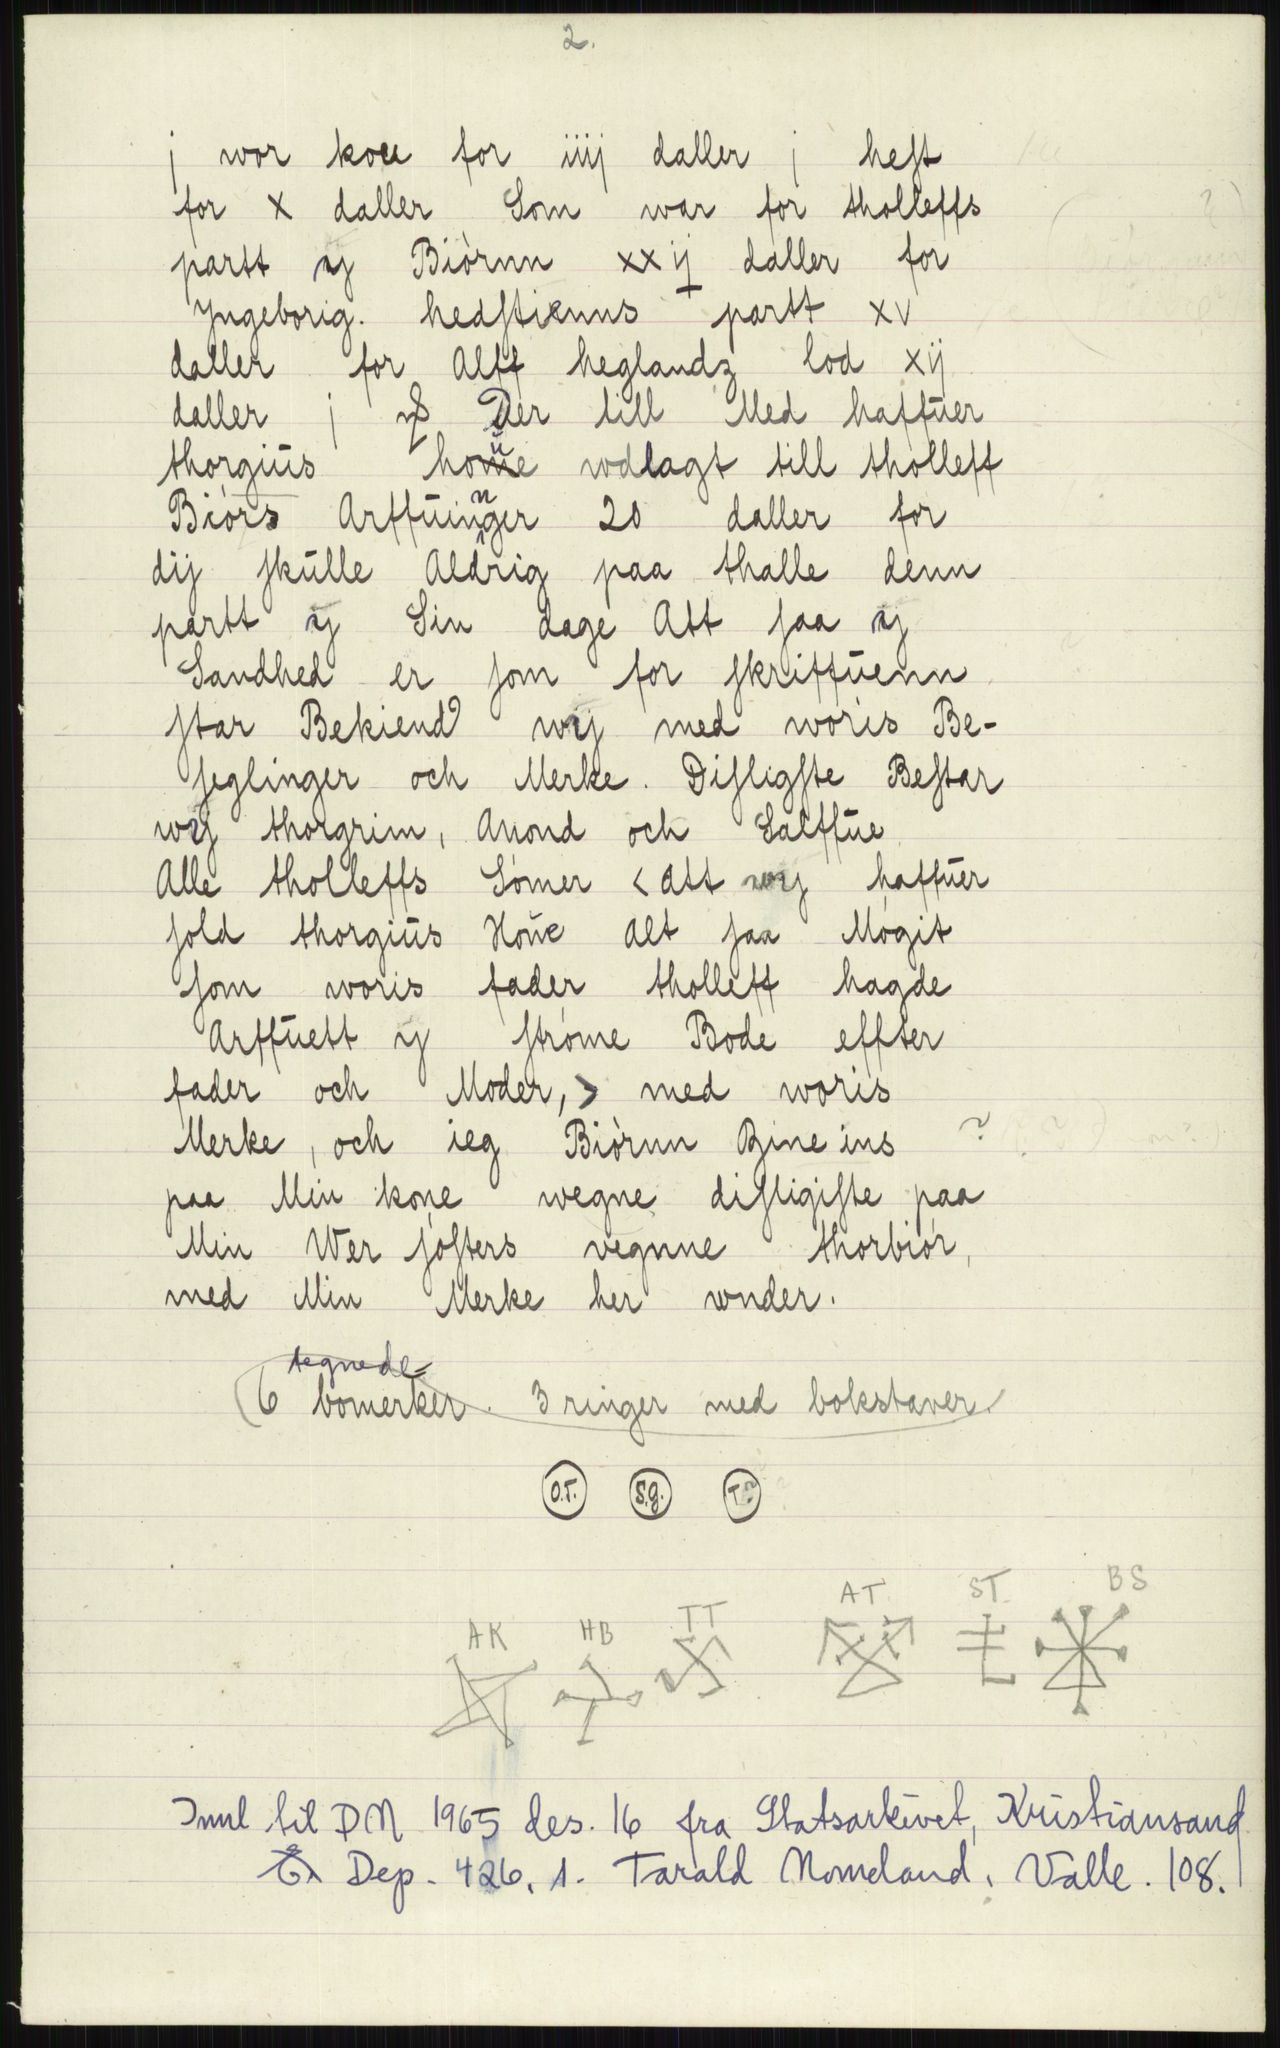 2.
j wor koe for iiij daller j hest
for x daller Som war for tholleffs
partt ij Biòrnn xxij daller for
Yngeborig. hedstienns partt xv
daller for Alff heglandz lod xij
daller j Der till Med haffŭer
thorgiŭs hoŭe wdlagt till tholleff
Biòrs Arffŭinger 20 daller for
dij skŭlle Aldrig paa thalle denn
partt ij Sin dage Att saa ij
Sandhed er som for skriffŭenn
star Bekiend wij med woris Be-
seglinger och Merke. Disligste Bestar
wij thorgrim, Anond och Salffŭe
Alle tholleffs Sòner < Att wij haffŭer
sold thorgiŭs Hoŭe Alt saa Mògit
som woris fader tholleff hagde
Arffŭett ij stròme Bode effter
fader och Moder, > med woris
Merke, och ieg Biòrnn ?
paa Min kone wegne disligiste paa
Min Wer sòsters vegnne thorbiòr,
med Min Merke her wnder.
(6 tegnede bomerker. 3 ringer med bokstaver)
O.T. S.G. T
AK HB TT AT ST BS
Innl til DN 1965 des. 16 fra Statsarkivet, Kristiansand
Dep. 426, 1. Tarald Nomeland, Valle. 108.